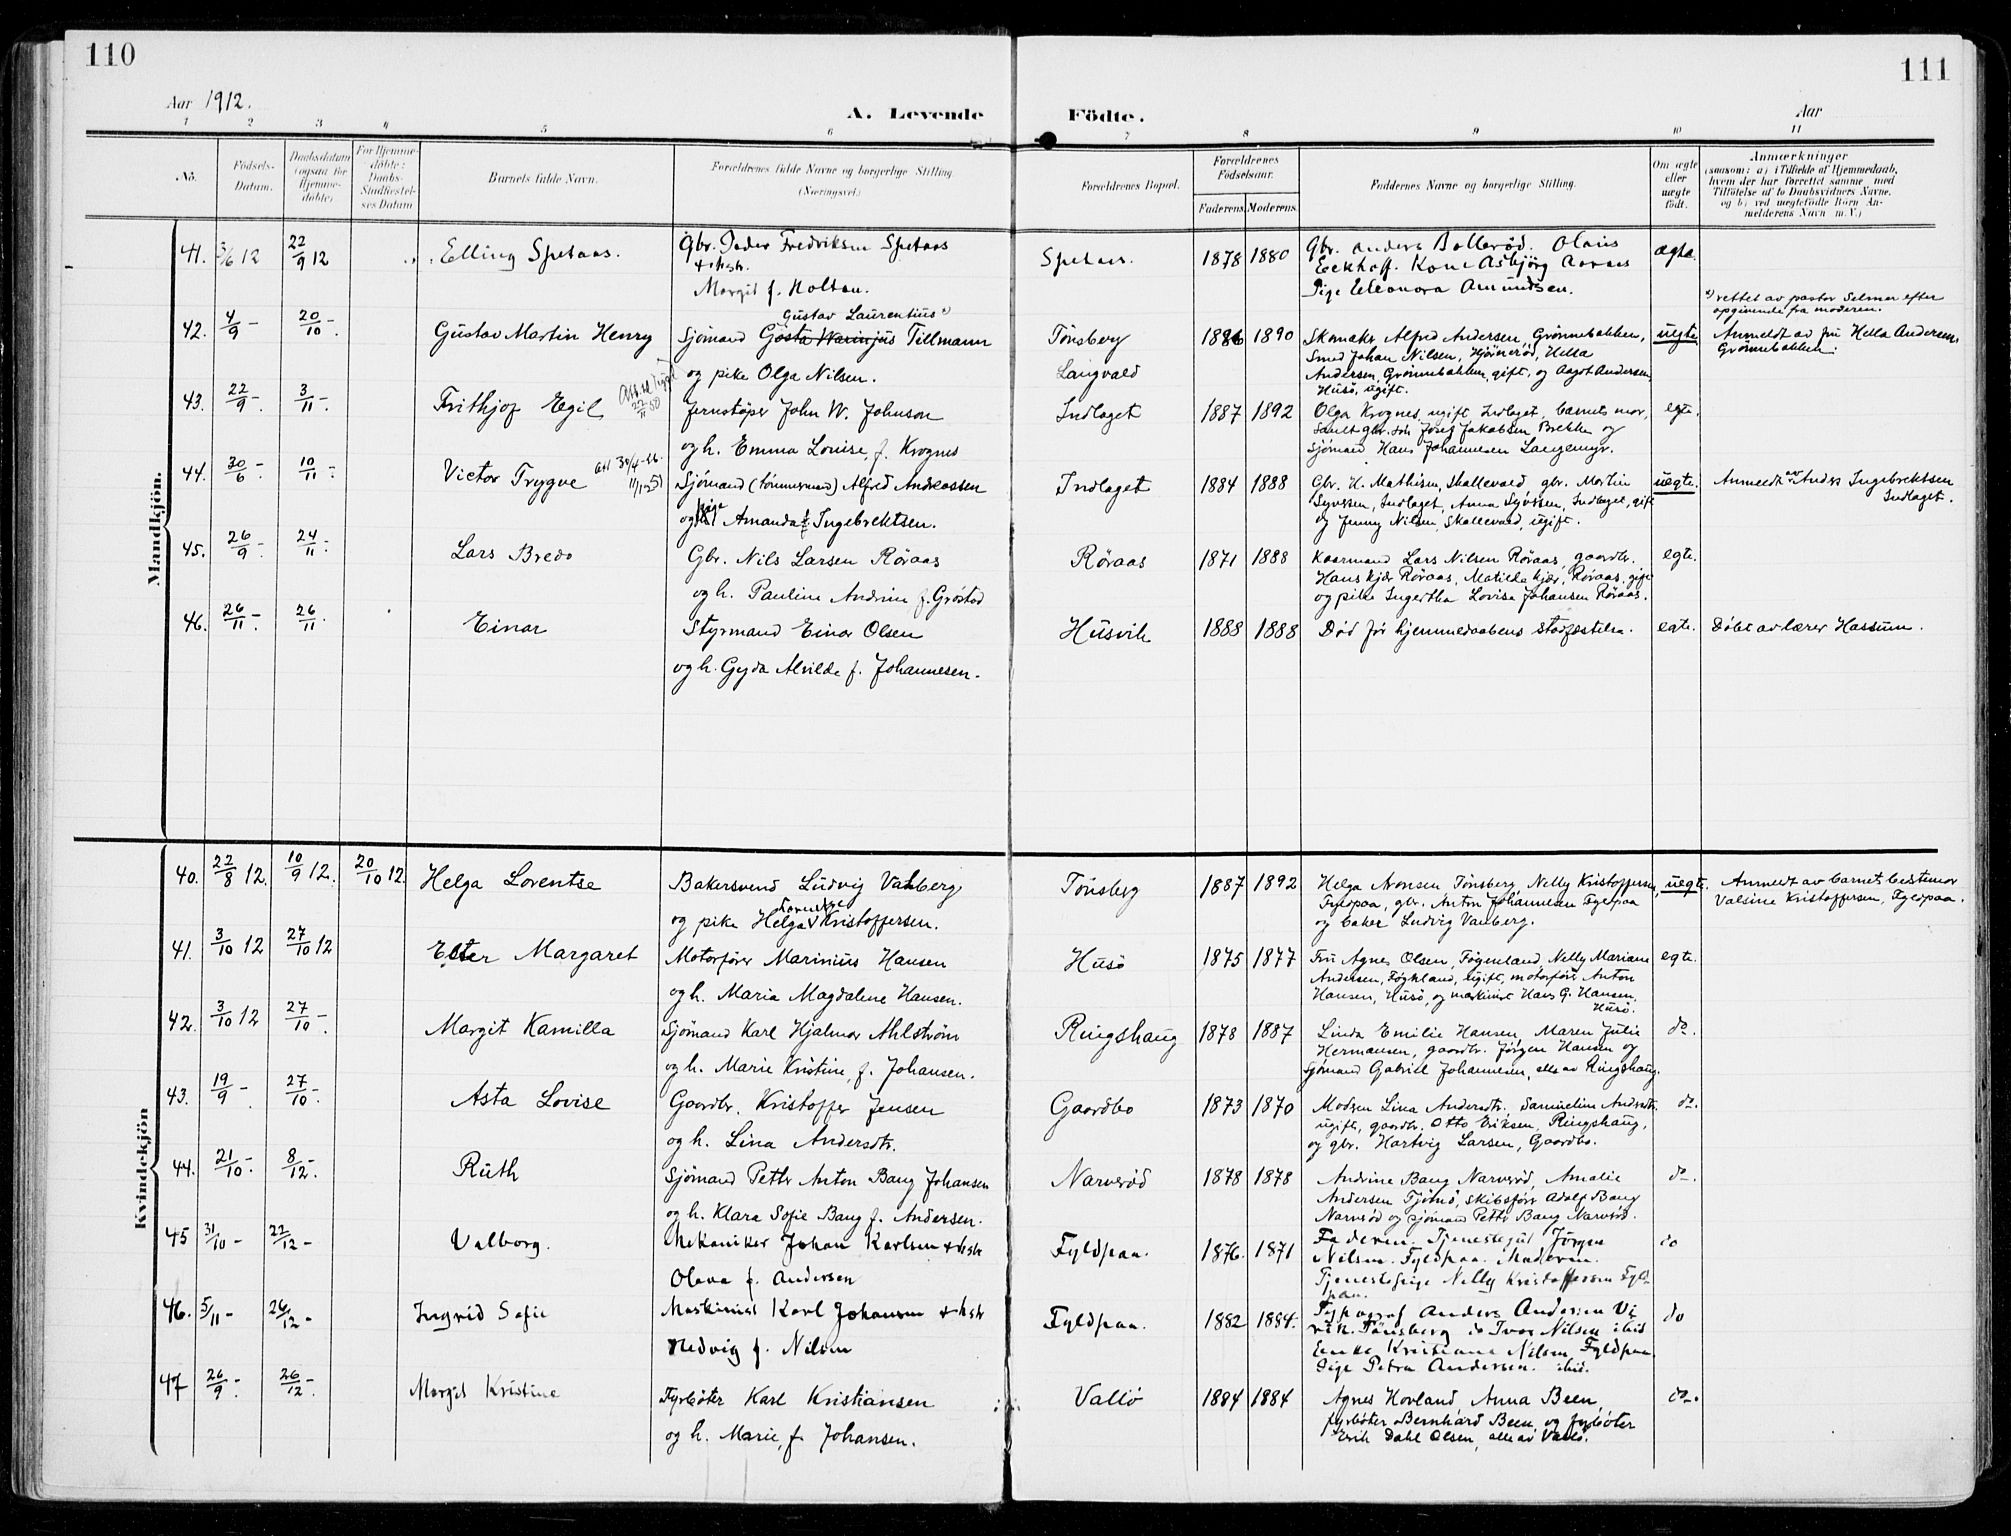 110
111
Aar 1912.
A. Levende
Födte.
Aar
1 2 3 4 5 6 7 8 9 10 11
No.
Födsels-Datum.
Daabsdatum (ogsaa for Hjemme-döbte)
For Hjemme-döbte: Daabs-Stadfæstel-ses Datum
Barnets fulde Navn.
Forældrenes fulde Navne og borgerlige Stilling. (Næringsvei)
Forældrenes Bopæl.
Forældrenes Födselsaar.
Faderens Moderens
Faddernes Navne og borgerlige Stilling.
Om ægte eller uægte födt.
Anmærkninger
(saasom: a) i Tilfælde af Hjemmedaab,
hvem der har forrettet samme med
Tilföielse af to Daabsvidners Navne,
og b) ved uægtefödte Börn An-
melderens Navn m. V.)
Mandkjön.
41. 5/6 12 22/9 12 Elling Spetaas. Gbr. Peder Fredriksen Spetaas Spetaas. 1878 1880 Gbr. Anders Bollerød. Olaus ægte.
+ hstr. Eckhoff. Kone Asbjörg Aornes
Margit f. Holtan. Pige Eleonora Amundsen.
Gustav Laurentius x) x) rettet av pastor Selmer efter
opgivende fra moderen.
42. 4/9 - 20/10 -. Gustav Martin Henry Sjömand Gösta Waringius Tillmann Tönsberg 1886 1890 Skomaker Alfred Andersen, Grønnebakken, uegte. Anmeldt av fru Hella Andersen,
og pike Olga Nilsen. Langvald Smed Johan Nilsen, Hjönerød, Hella Grönnebakken.
Andersen, Grønnebakken, gift, og Aagot Andersen
Husö, ugift.
43. 22/9 -. 3/11 -. Frithjof Egil Jernstøper John W. Johnson Indlaget 1887 1892 Olga Krognes, ugift Indlaget, barnets mor, egte.
og h. Emma Louise, f. Krognes samt gbr. søn Josef Jakobsen Bekke og
Sjömand Hans Johannesen Langemyr.
44. 30/6 - 10/11 -. Victor Trygve Att 30/4-46. Sjömand (tömmermand) Alfred Andreassen Indlaget 1884 1888 Gbr. H. Mathisen, Skallevald, gbr. Martin uegte. Anmeldt av Anders Ingebrektsen
og pige Amanda f. Ingebrektsen. Syvssen, Indlaget, Anna Syvssen, Indlaget, gift Indlaget.
og Jenny Nilsen, Skallevald, ugift.
45. 26/9 -. 24/11 -. Lars Bredo Gbr. Nils Larsen Røraas Røraas 1871 1888 Kaarmand Lars Nilsen Røraas, gaardbr. egte.
og h. Pauline Andrine f. Gröstad Hans Kjær Røraas, Matilda Kjær, Røraas, gift
og pike Ingertha Lovise Johansen Røraas.
46. 26/11 -. 26/11. Einar Styrmand Einar Olsen Husvik 1888 1888 Död før hjemmedaabens stadfæstelse. egte. Döbt av lærer Hassum.
og h. Gyda Alvilde f. Johannesen.
Kvindekjön
40. 22/8 12. 10/9 12. 20/10 12. Helga Lorentse Bakersvend Ludvig Valberg Tönsberg 1887 1892 Helga Aronsen Tønsberg, Nelly Kristoffersen, uegte. Anmeldt av barnets bestemor
og pike Helga Lorentse Kristoffersen. Fyldpaa, gbr. Anton Johannesen Fyldpaa Valsine Kristoffersen, Fyldpaa.
og baker Ludvig Vanberg.
41. 3/10 12 27/10 12 Ester Margaret Motorfører Marinius Hansen Husö 1875 1877 Fru Agnes Olsen, Føgenland, Nelly Mariane egte.
og h. Maria Magdalene Hansen. Andersen, Føykland, ugift, motorfører Anton
Hansen, Husø, og maskinist Hans G. Hansen,
Husø.
42. 3/10 12 27/10 -. Margit Kamilla Sjömand Karl Hjalmar Ahlström Ringshaug 1878 1887 Linda Emilie Hansen, Maren Julie do.
og h. Marie Kristine, f. Johansen. Hermansen, gaardbr. Jörgen Hansen og
Sjömand Gabriel Johannesen, alle av Ringshaug.
43. 19/9 - 27/10 -. Asta Lovise Gaardbr. Kristoffer Jensen Gaardbo 1873 1870 Modren Lina Andersdtr. Samueline Andersdtr. do.
og h. Lina Andersdtr. ugift, gaardbr. Otto Eriksen, Ringshaug,
og gbr. Hartvig Larsen, Gaardbo.
44. 21/10 -. 8/12 -. Ruth Sjömand Petter Anton Bang Johansen Narverød 1878 1878 Andrine Bang Narverød, Amalie do.
og h. Klara Sofie Bang f. Andersen. Andersen Tjömö, skibsfører Adolf Bang
Narverød og sjömand Petter Bang Narverød.
45 31/10 - 22/12 - Valborg. Mekaniker Johan Karlsen + hstr Fyldpaa. 1876. 1871 Faderen. Tjenestegut Jörgen do
Olava f. Andersen Nilsen. Fyldpaa. Moderen.
Tjenestepige Nelly Kristoffersen Fyld-
paa.
46. 5/11 - 26/12 - Ingrid Sofie Maskinist Karl Johansen + hstr Fyldpaa. 1882 1884. Typograf Anders Andersen Vi do
Hedvig f. Nilsen rik. Tönsberg do Ivar Nilsen ibid
Kristiane Nilsen Fyldpaa
Pige Petra Andersen. ibid.
47 26/9 -. 26/12 -. Margit Kristine Fyrbøter Karl Kristiansen Vallö 1884 1884 Agnes Hovland, Anna Been, do.
og h. Marie, f. Johansen. fyrbøter Bernhard Been, og fyrbøter
Erik Dahl Olsen, alle av Vallö.